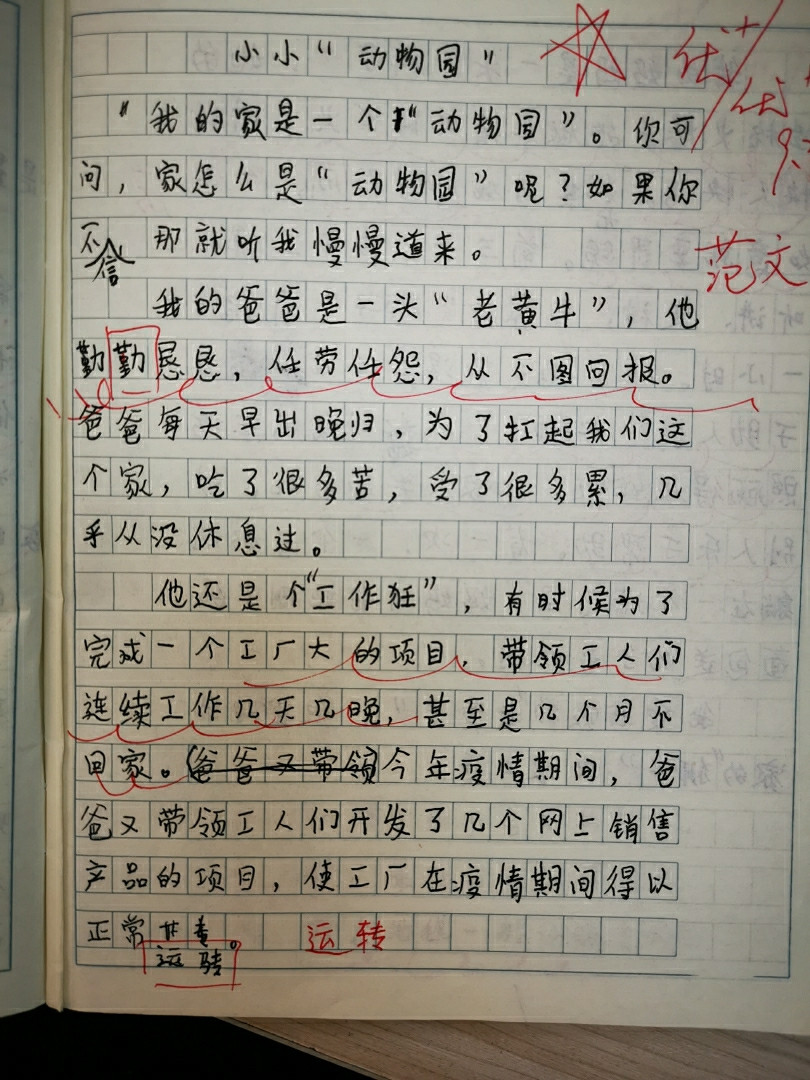 小小“动物园”
优+
优+
“我的家是一个“动物园”。你可
问，家怎么是“动物园”呢？如果你
不信 那就听我慢慢道来。
范文
我的爸爸是一头“老黄牛”，他
勤勤恳恳，任劳任怨，从不图回报。
爸爸每天早出晚归，为了扛起我们这
个家，吃了很多苦，受了很多累，几
乎从没休息过。
他还是个“工作狂”，有时候为了
完成一个工厂大的项目，带领工人们
连续工作几天几晚，甚至是几个月不
回家。(爸爸又带领今年疫情期间，爸
爸又带领工人们开发了几个网上销售
产品的项目，使工厂在疫情期间得以
正常。 运转
运转